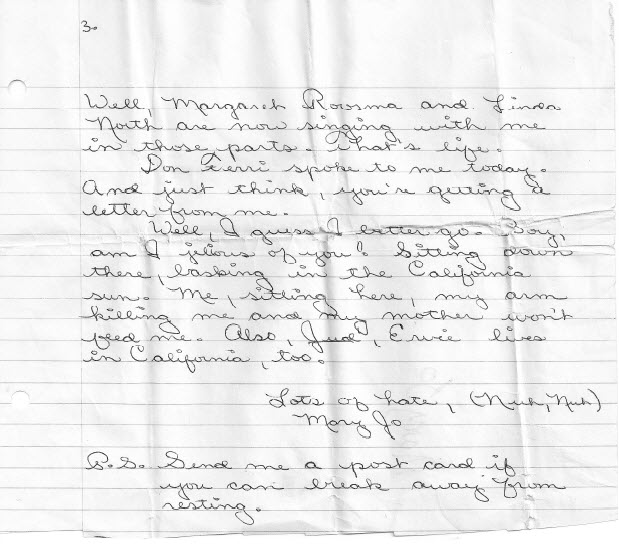 3.
Well, Margaret Rowsma and Linda
North are now singing with me
in those parts. That's life.
Don Ferri spoke to me today.
And just think, you're getting a
letter from me.
Well, I guess I better go. Boy,
am I jilous of you! Sitting down
there, basking in the California
sun. Me, sitting here, my arm
killing me and my mother won't
feed me. Also, Jud, Ernie lives
in California, too.
Lots of hate, (Nuh, Nuh)
Mary Jo
P.S. Send me a post card if
you can break away from
resting.